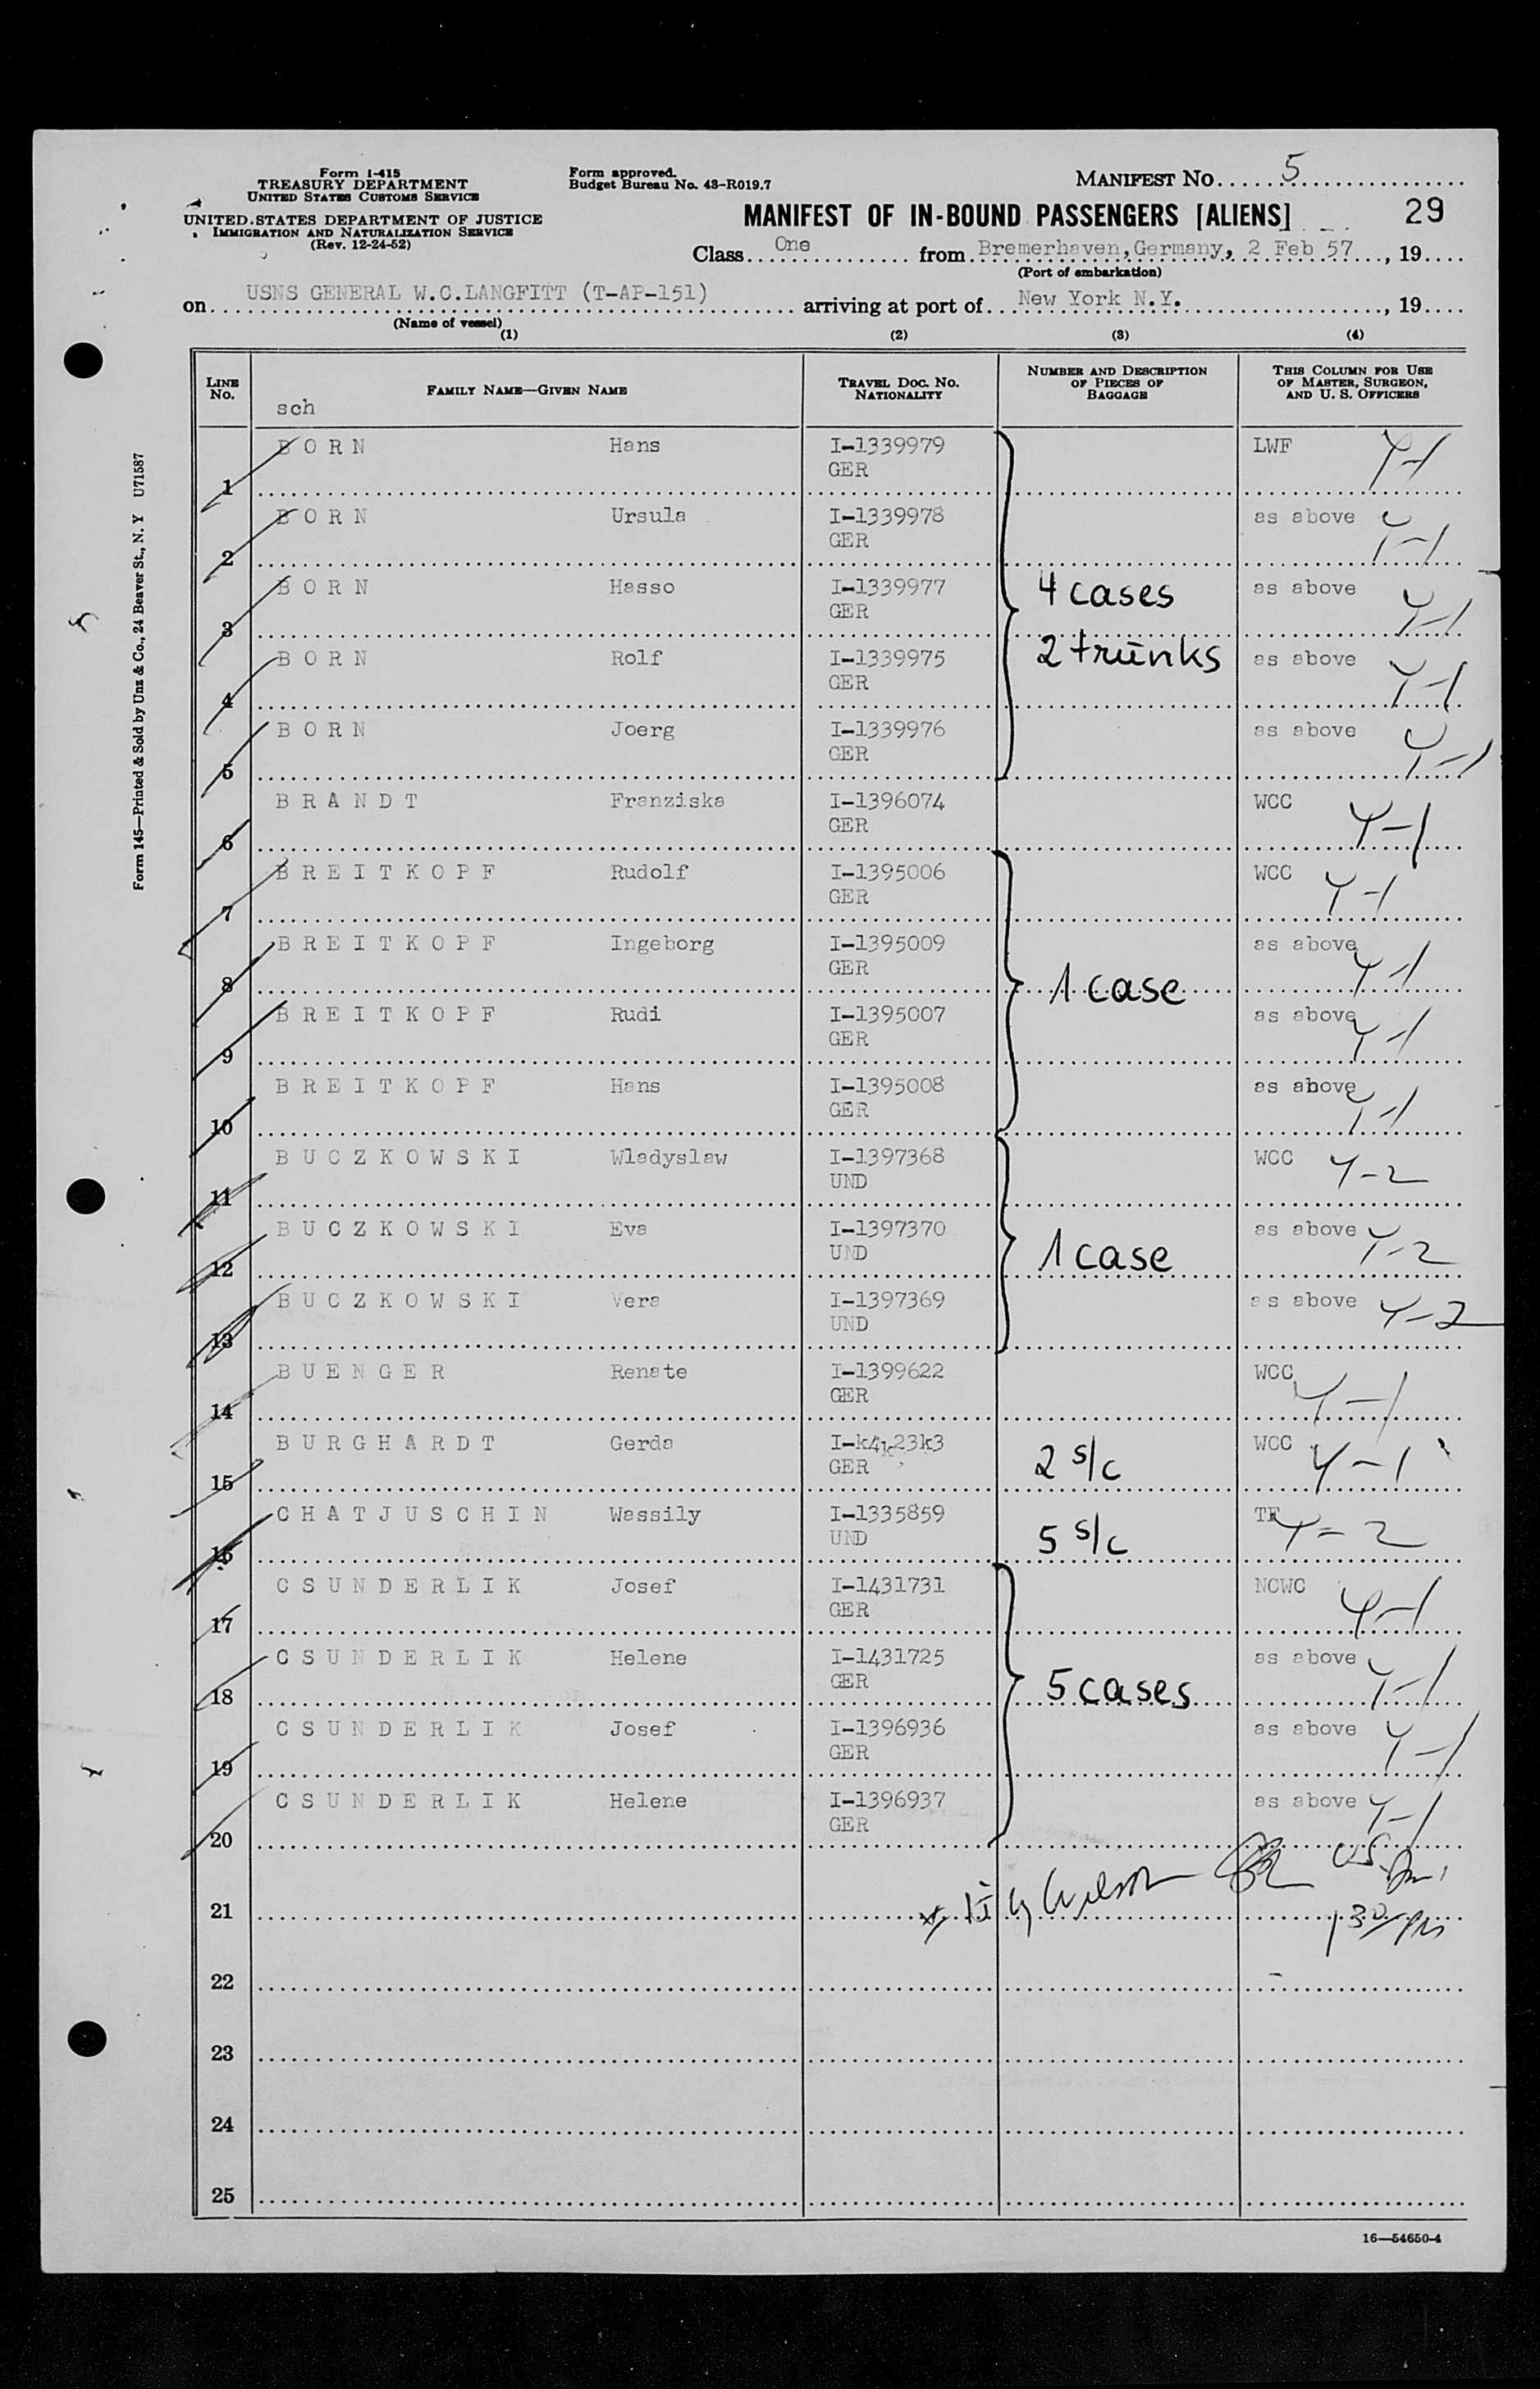 Form I-415
TREASURY DEPARTMENT
UNITED STATES CUSTOMS SERVICE
UNITED STATES DEPARTMENT OF JUSTICE
IMMIGRATION AND NATURALIZATION SERVICE
(Rev. 12-24-52)
Form approved.
Budget Bureau No. 43-R019.7
MANIFEST NO. 5
MANIFEST OF IN-BOUND PASSENGERS [ALIENS] 29
Class One from Bremerhaven,Germany, 2 Feb 57, 19
(Port of embarkation)
on USNS GENERAL W.C.LANGFITT (T-AP-151) arriving at port of New York N.Y., 19
(Name of vessel)
(1) (2) (3) (4)
LINE NO. FAMILY NAME—GIVEN NAME TRAVEL DOC. NO. NATIONALITY NUMBER AND DESCRIPTION OF PIECES OF BAGGAGE THIS COLUMN FOR USE OF MASTER, SURGEON, AND U. S. OFFICERS
sch
1 BORN Hans I-1339979 LWF Y-1
GER
2 BORN Ursula I-1339978 as above Y-1
GER
3 BORN Hasso I-1339977 4 cases as above Y-1
GER
4 BORN Rolf I-1339975 2 trunks as above Y-1
GER
5 BORN Joerg I-1339976 as above Y-1
GER
6 BRANDT Franziska I-1396074 WCC Y-1
GER
7 BREITKOPF Rudolf I-1395006 WCC Y-1
GER
8 BREITKOPF Ingeborg I-1395009 as above Y-1
GER 1 case
9 BREITKOPF Rudi I-1395007 as above Y-1
GER
10 BREITKOPF Hans I-1395008 as above Y-1
GER
11 BUCZKOWSKI Wladyslaw I-1397368 WCC Y-2
UND
12 BUCZKOWSKI Eva I-1397370 1 case as above Y-2
UND
13 BUCZKOWSKI Vera I-1397369 as above Y-2
UND
14 BUENGER Renate I-1399622 WCC Y-1
GER
15 BURGHARDT Gerda I-k4k23k3 2 s/c WCC Y-1
GER
16 CHATJUSCHIN Wassily I-1335859 5 s/c TF Y-2
UND
17 CSUNDERLIK Josef I-1431731 NCWC Y-1
GER
18 CSUNDERLIK Helene I-1431725 5 cases as above Y-1
GER
19 CSUNDERLIK Josef I-1396936 as above Y-1
GER
20 CSUNDERLIK Helene I-1396937 as above Y-1
GER
21
22
23
24
25
16—54650-4
Form 145—Printed & Sold by Unz & Co., 24 Beaver St., N. Y U71587